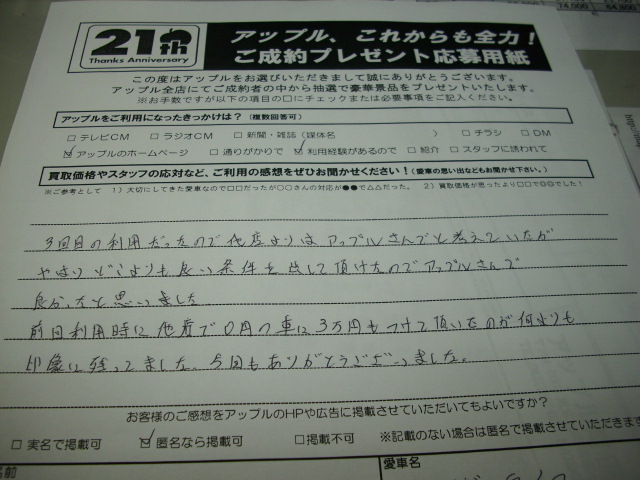 21th
Thanks Anniversary
アップル、これからも全力!
ご成約プレゼント応募用紙
この度はアップルをお選びいただきまして誠にありがとうございます。
アップル全店にてご成約者の中から抽選で豪華景品をプレゼントいたします。
※お手数ですが以下の項目の□にチェックまたは必要事項をご記入ください。
アップルをご利用になったきっかけは?(複数回答可)
□テレビCM □ラジオCM □新聞・雑誌(媒体名 ) □チラシ □DM
☑アップルのホームページ □通りがかりで ☑利用経験があるので □紹介 □スタッフに誘われて
買取価格やスタッフの応対など、ご利用の感想をぜひお聞かせください!(愛車の思い出などもお聞かせ下さい。)
※ご参考として 1)大切にしてきた愛車なので□□だったが○○さんの対応が●●で△△だった。 2)買取価格が思ったより□□で◎◎でした!
3回目の利用だったので他店よりはアップルさんでと考えていたが
やはりどこよりも良い条件を出して頂けたのでアップルさんで
良かったと思いました
前回利用時に他店で0円の車に3万円もつけて頂いたのが何よりも
印象に残ってました。今回もありがとうございました。
お客様のご感想をアップルのHPや広告に掲載させていただいてもよいですか?
□実名で掲載可 ☑匿名なら掲載可 □掲載不可 ※記載のない場合は匿名で掲載させていただきます
名前
愛車名